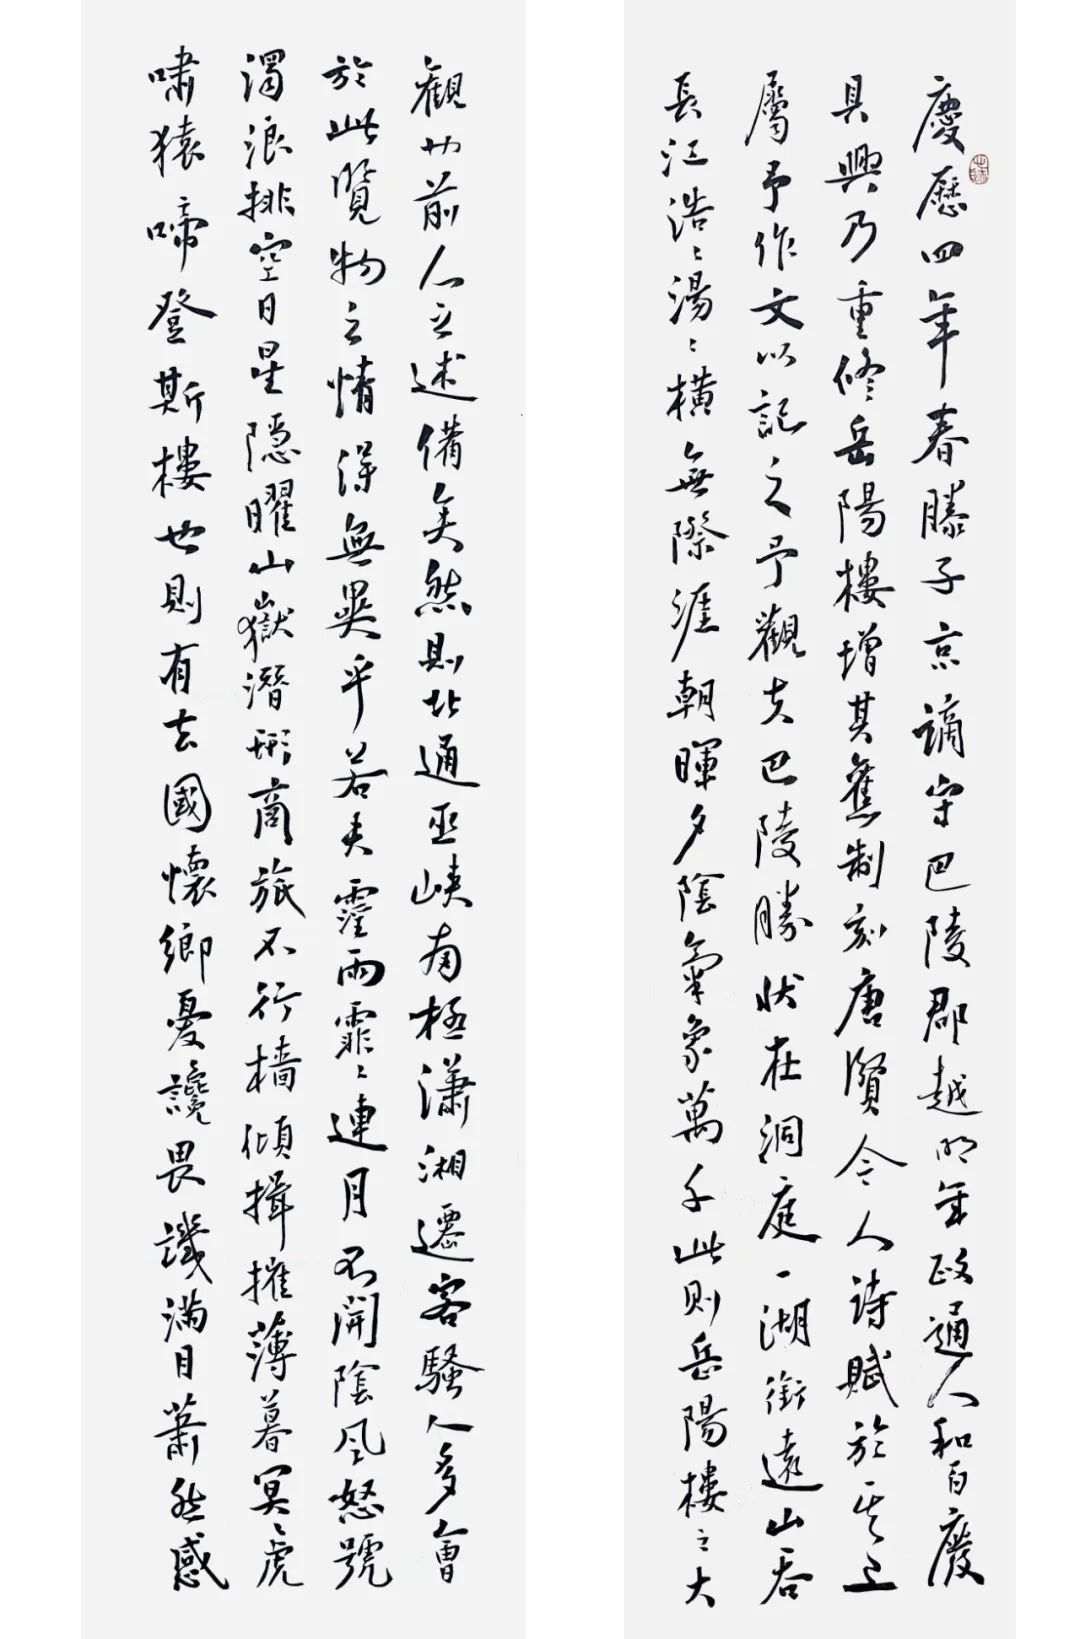 慶歷四年春滕子京謫守巴陵郡越明年政通人和百廢
具興乃重修岳陽樓增其舊制刻唐賢今人詩賦於其上
屬予作文以記之予觀夫巴陵勝狀在洞庭一湖銜遠山吞
長江浩〻湯〻橫無際涯朝暉夕陰氣象萬千此則岳陽樓之大
觀也前人之述備矣然則北通巫峽南極瀟湘遷客騷人多會
於此覽物之情得無異乎若夫霪雨霏〻連月不開陰風怒號
濁浪排空日星隱曜山嶽潛形商旅不行檣傾楫摧薄暮冥〻虎
嘯猿啼登斯樓也則有去國懷鄉憂讒畏譏滿目蕭然感